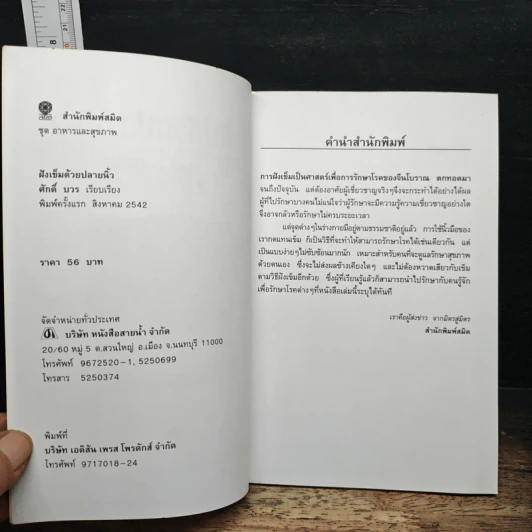 สำนักพิมพ์สมิต
ชุด อาหารและสุขภาพ
ฝังเข็มด้วยปลายนิ้ว
ศักดิ์ บวร เรียบเรียง
พิมพ์ครั้งแรก สิงหาคม 2542
ราคา 56 บาท
จัดจำหน่ายทั่วประเทศ
บริษัท หนังสือสายน้ำ จำกัด
20/60 หมู่ 5 ต.สวนใหญ่ อ.เมือง จ.นนทบุรี 11000
โทรศัพท์ 9672520-1, 5250699
โทรสาร 5250374
พิมพ์ที่
บริษัท เอดิสัน เพรส โพรดักส์ จำกัด
โทรศัพท์ 9717018-24
คำนำสำนักพิมพ์
การฝังเข็มเป็นศาสตร์เพื่อการรักษาโรคของจีนโบราณ ตกทอดมา
จนถึงปัจจุบัน แต่ต้องอาศัยผู้เชี่ยวชาญจริงๆจึงจะกระทำได้อย่างได้ผล
ผู้ที่ไปรักษาบางคนไม่แน่ใจว่าผู้รักษาจะมีความรู้ความเชี่ยวชาญอย่างใด
จึงอาจกลัวหรือรักษาไม่ครบระยะเวลา
แต่จุดต่างๆในร่างกายมีอยู่ตามธรรมชาติอยู่แล้ว การใช้นิ้วมือของ
เรากดแทนเข็ม ก็เป็นวิธีที่จะทำให้สามารถรักษาโรคได้เช่นเดียวกัน แต่
เป็นแบบง่ายๆไม่ซับซ้อนมากนัก เหมาะสำหรับคนที่จะดูแลรักษาสุขภาพ
ด้วยตนเอง ซึ่งจะไม่ส่งผลข้างเคียงใดๆ และไม่ต้องหวาดเสียวกับเข็ม
ตามวิธีฝังเข็มอีกด้วย ซึ่งผู้ที่เรียนรู้แล้วก็สามารถนำไปรักษากับคนรู้จัก
เพื่อรักษาโรคต่างๆที่หนังสือเล่มนี้ระบุได้ทันที
เราคือผู้ส่งข่าว จากมิตรสู่มิตร
สำนักพิมพ์สมิต